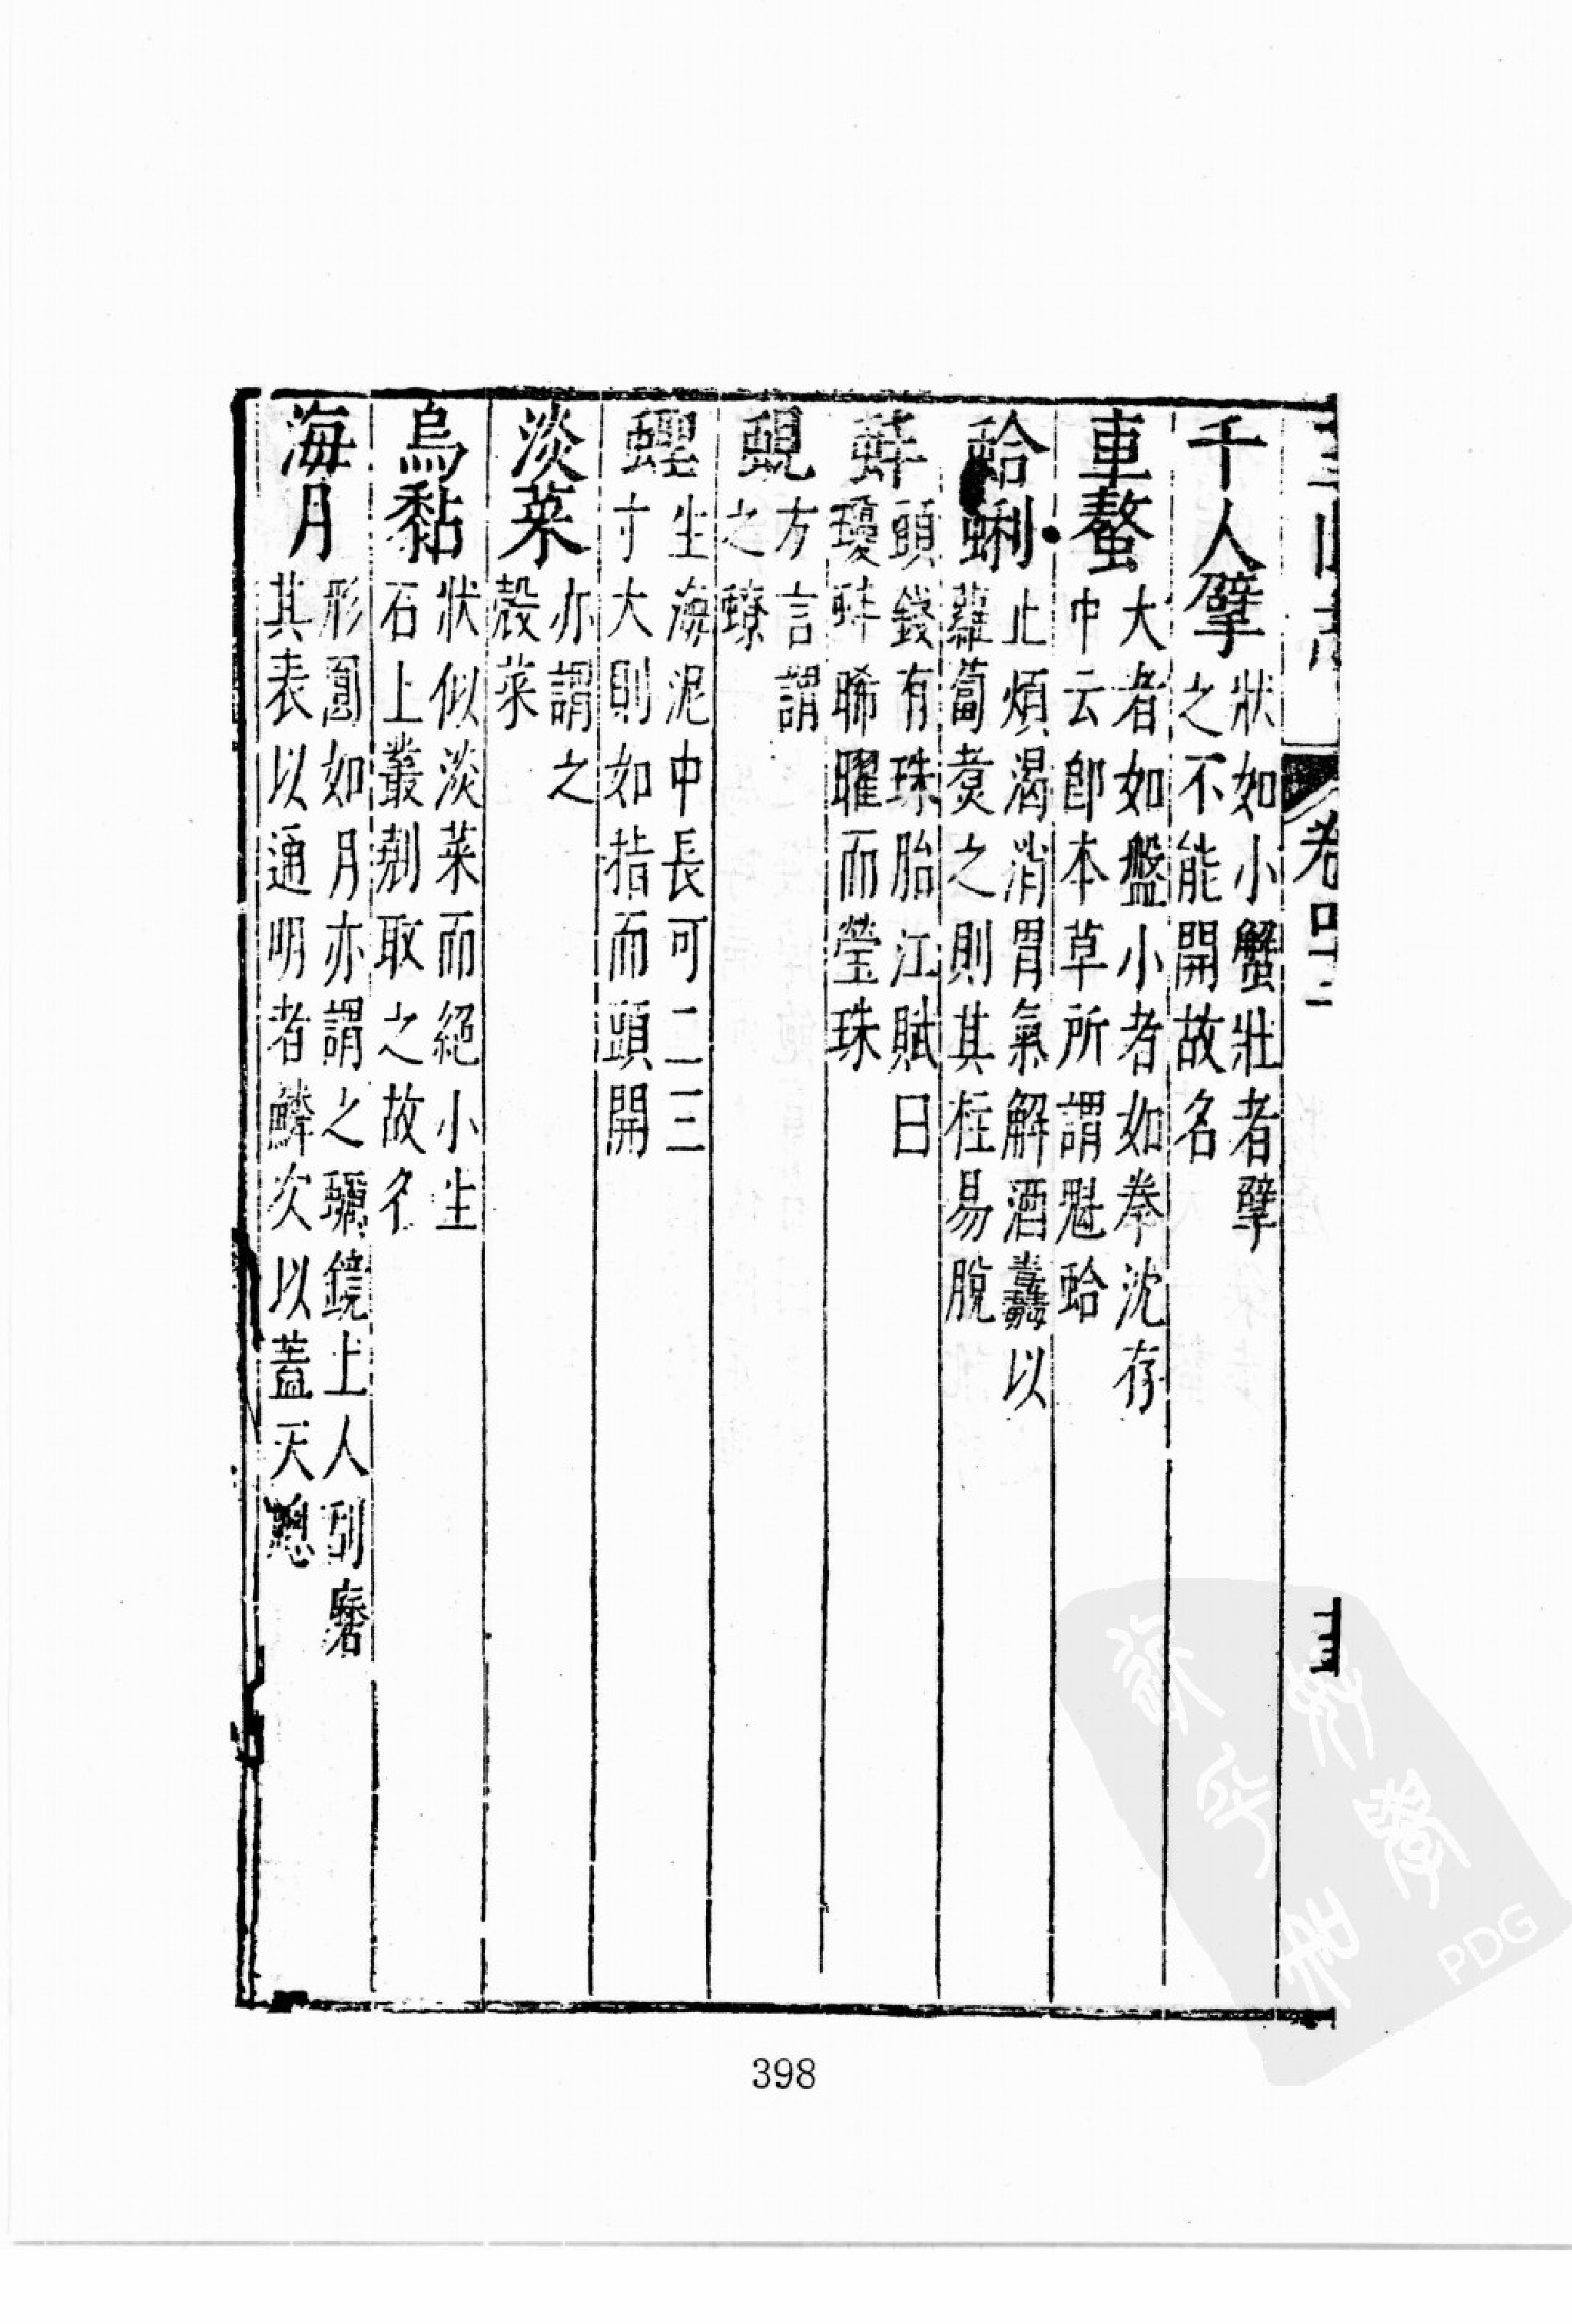 卷四二
千人擘狀如小蟹壯者擘
之不能開故名
車螯大者如盤小者如拳沈存
中云卽本草所謂魁蛤
蛤蜊止煩渴消胃氣解酒蠹以
蘿蔔煑之則其柱易脫
蚌頭錢有珠胎江賦曰
瓊蚌晞曜而瑩珠
蜆方言謂
之蟟
蟶生海泥中長可二三
寸大則如指而頭開
淡菜亦謂之
殼菜
烏黏狀似淡菜而絕小生
石上叢剔取之故名
海月形圓如月亦謂之蠣鏡土人刮磨
其表以通明者鱗次以蓋天窻
398
PDG